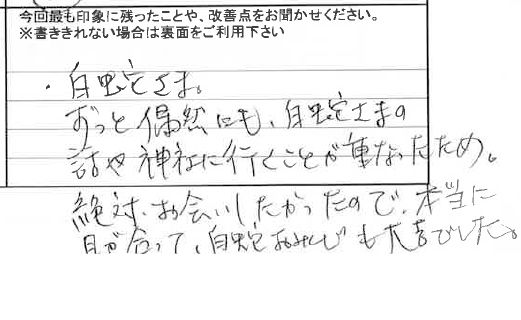 今回最も印象に残ったことや、改善点をお聞かせください。
※書ききれない場合は裏面をご利用下さい
・白蛇さま。
ずっと偶然にも、白蛇さまの
話や神社に行くことが重なったため。
絶対、お会いしたかったので、本当に
目が合って、白蛇おみくじも大吉でした。